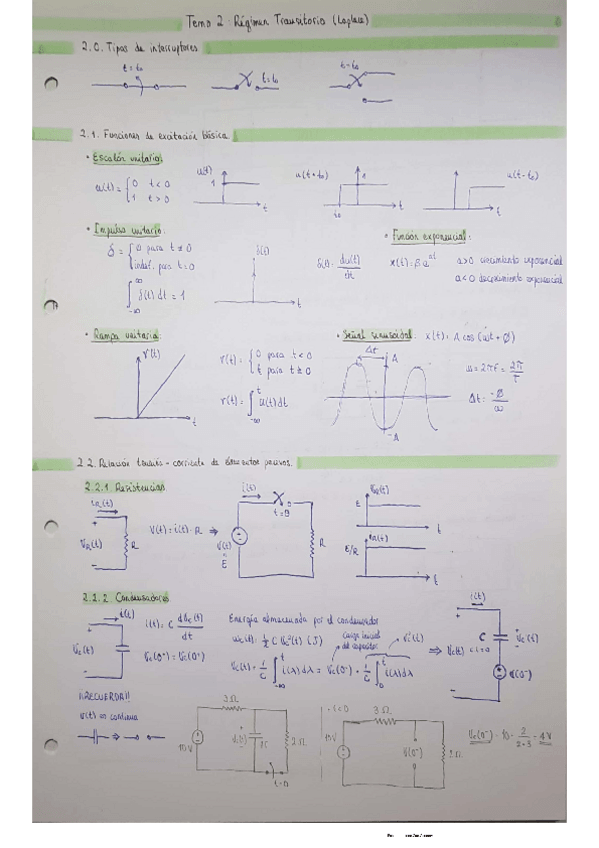 Tema 2: Régimen Transitorio (Laplace)
2.0. Tipos de interruptores
t=t₀
t=t₀
t=t₀
2.1. Funciones de excitación básica
• Escalón unitario:
u(t) = { 0 t<0
1 t>0
u(t)
1
t
u(t+t₀)
1
t₀
t
u(t-t₀)
t
• Impulso unitario:
δ = { 0 para t≠0
indef. para t=0
∫ δ(t) dt = 1
∞
-∞
δ(t)
t
δ(t) = du(t)/dt
• Función exponencial:
x(t) = β e^at
a>0 crecimiento exponencial
a<0 decrecimiento exponencial
• Rampa unitaria:
r(t)
t
r(t) = { 0 para t<0
t para t≥0
r(t) = ∫ u(t) dt
t
-∞
• Señal senoidal: x(t) = A cos (ωt + Ø)
Δt
A
-A
ω = 2πf = 2π/T
Δt = -Ø/ω
2.2. Relación tensión-corriente de elementos pasivos.
2.2.1 Resistencias
i_R(t)
+
V_R(t)
-
R
V(t) = i(t)·R ⇒
i(t)
t=0
V(t)
=
E
R
V_R(t)
E
t
i_R(t)
E/R
t
2.2.2 Condensadores
i(t)
+
V_c(t)
-
i(t) = C dV_c(t)/dt
V_c(0⁺) = V_c(0⁻)
Energía almacenada por el condensador
w_c(t) = ½ C V_c²(t) (J)
Carga inicial
del capacitor
V_c(t) = 1/C ∫ i(λ)dλ = V_c(0⁻) + 1/C ∫ i(λ)dλ
t
-∞
t
0
⇒
i(t)
C
+
-
V_c(t)
V(0⁻)
¡¡RECUERDA!!
v(t) = continua
3Ω
10V
2Ω
t=0
• t<0
3Ω
10V
V(0⁻)
2Ω
V_c(0⁻) = 10· 2/(2+3) = 4V